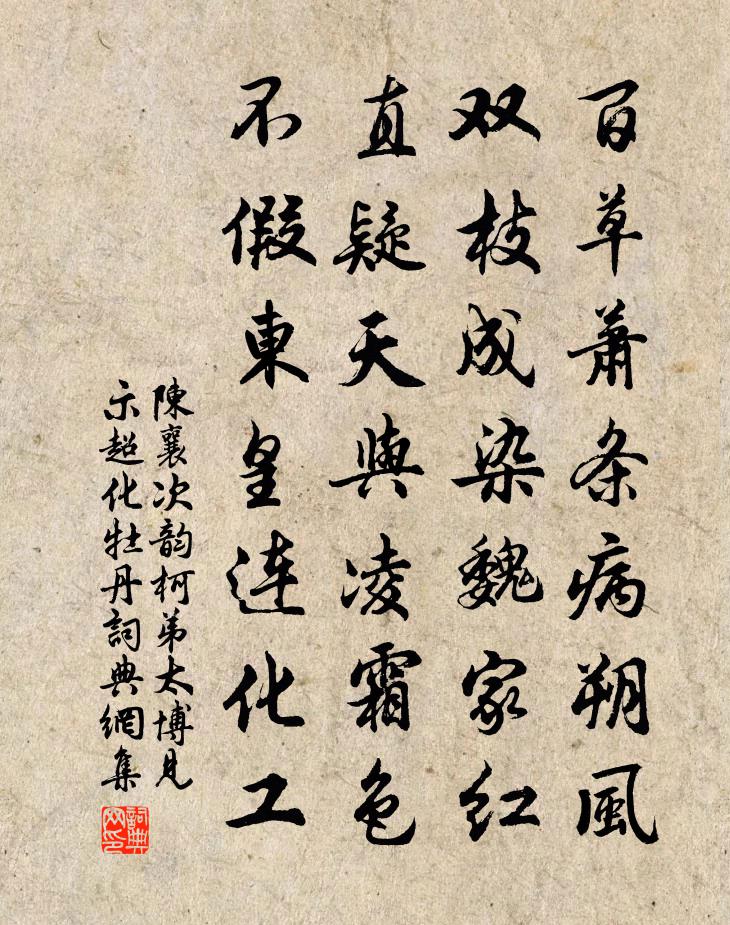 百草萧条病朔風
双枝成染魏家红
直疑天與凌霜色
不假東皇連化工
陳襄次韵柯弟太博見
示超化牡丹詞典網集
詞典
网印